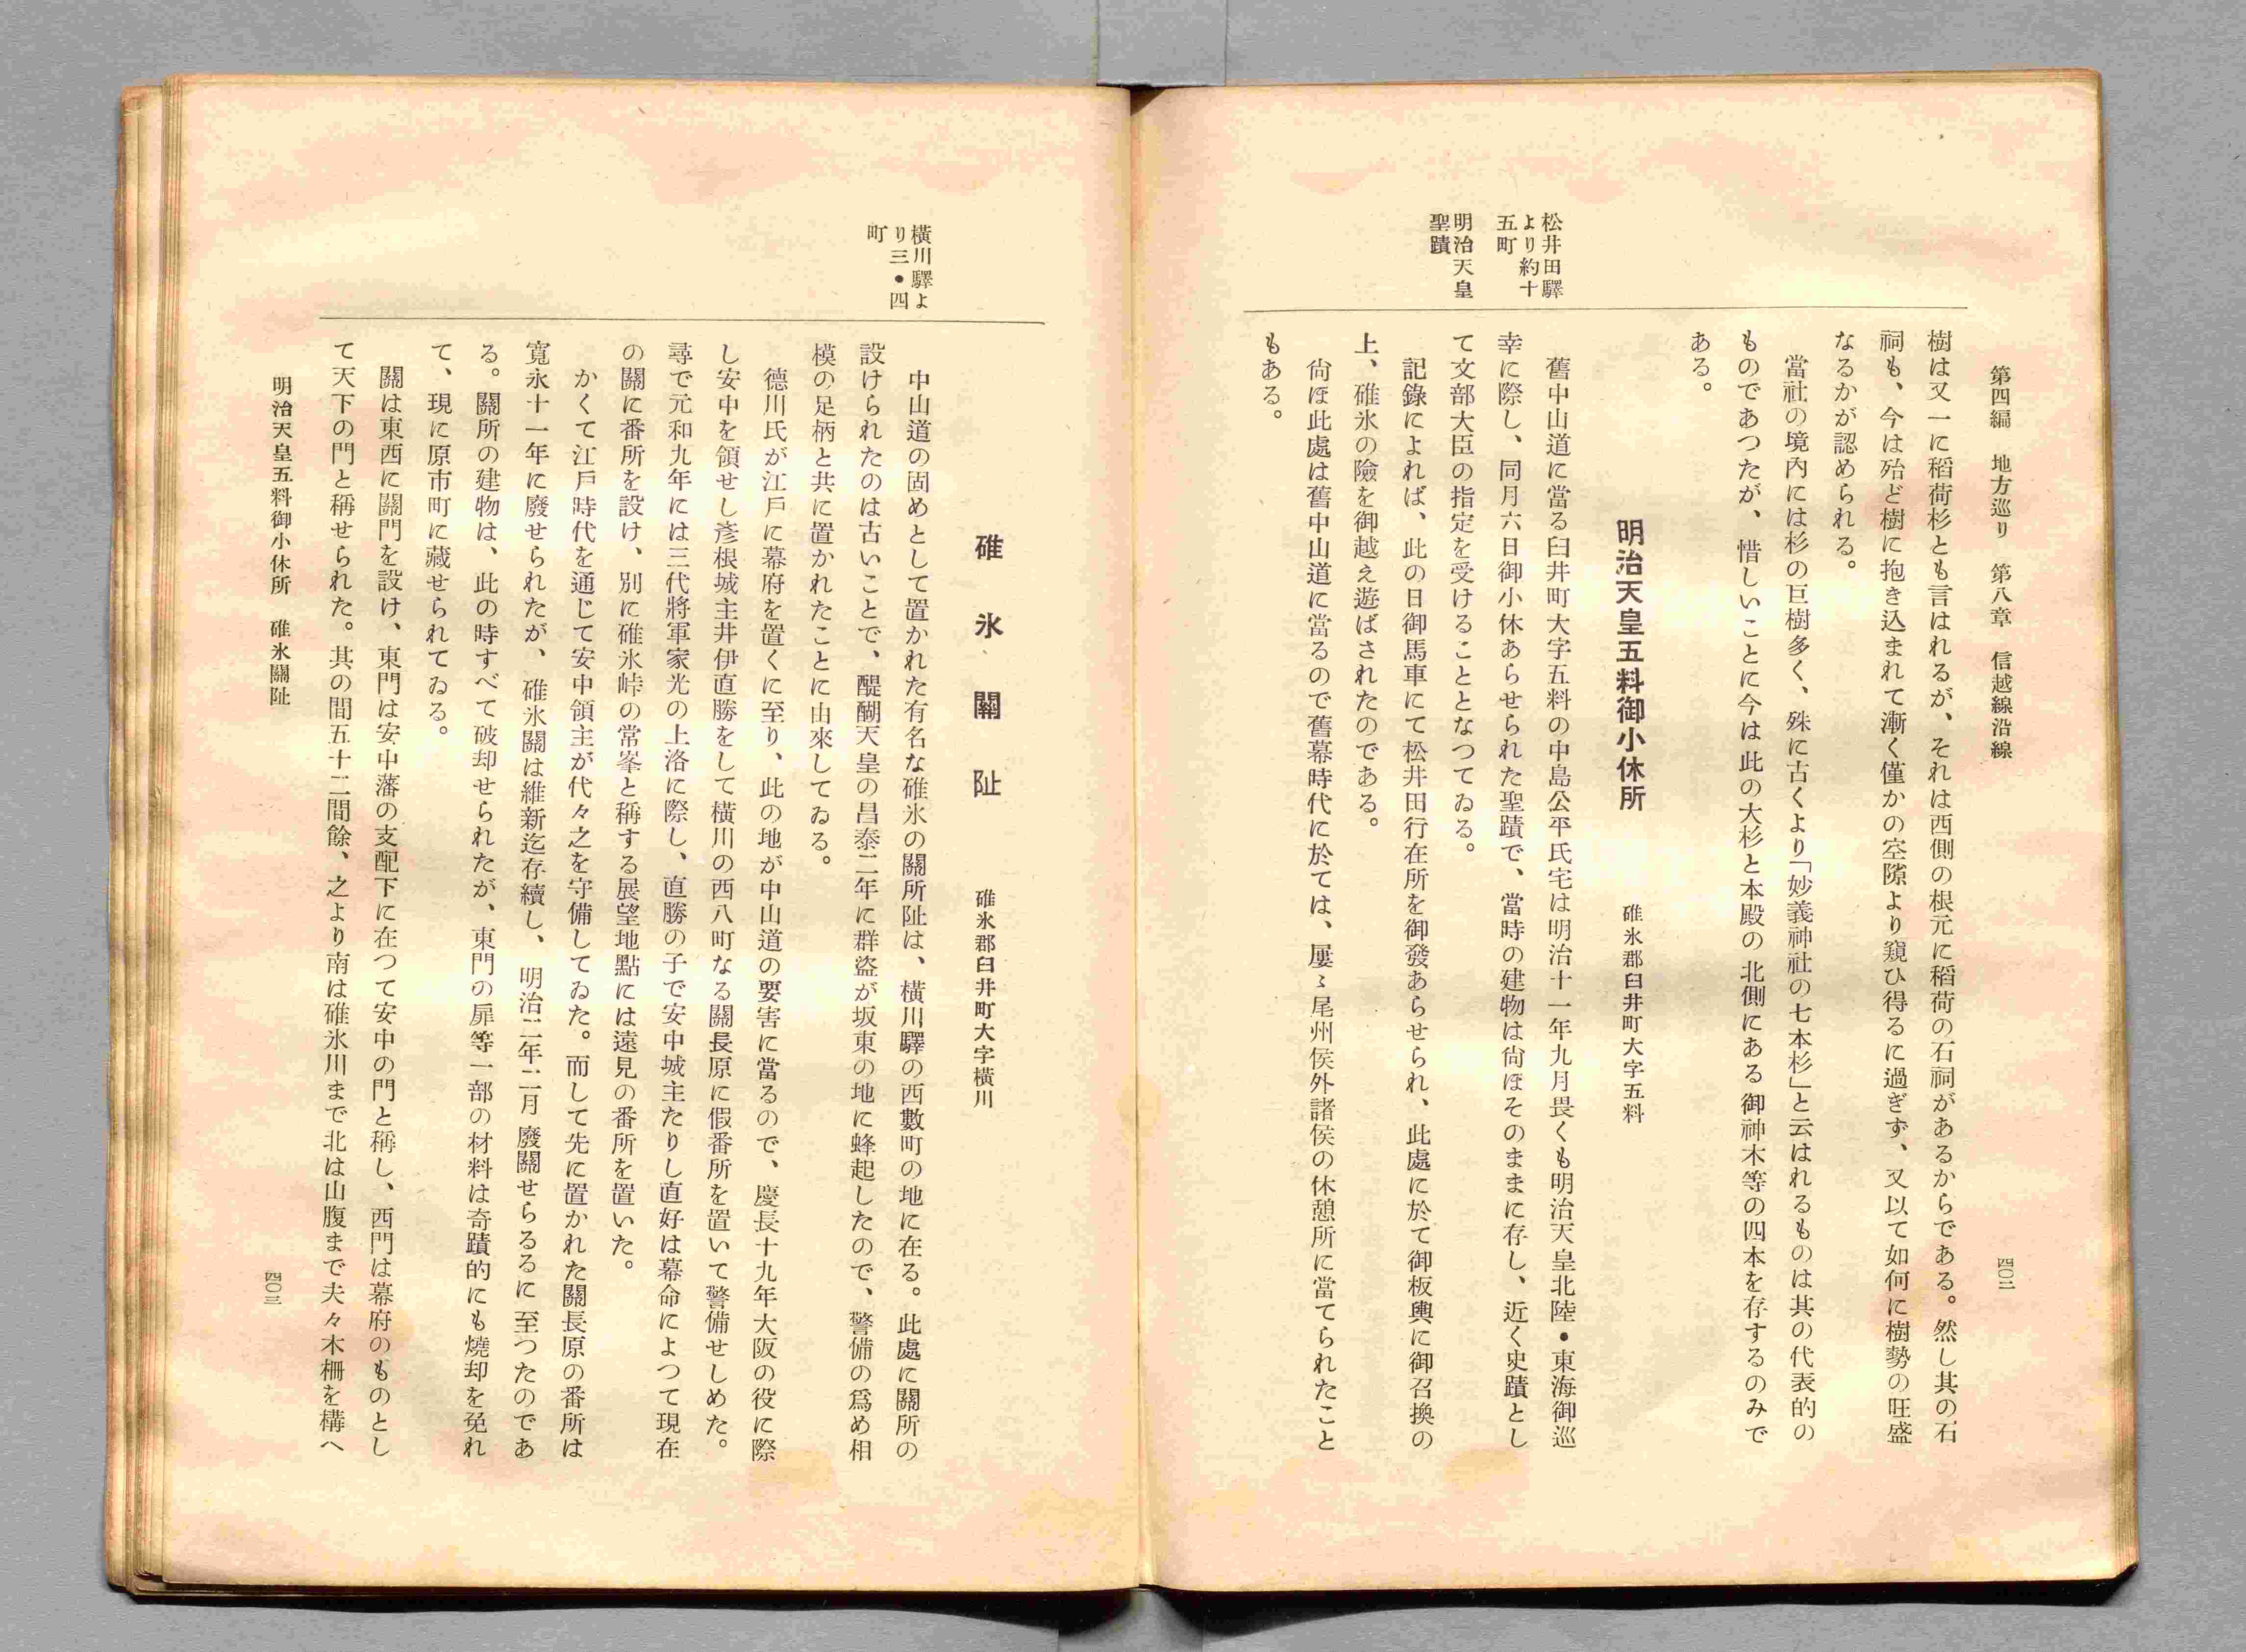 第四編　地方巡り　第八章　信越線沿線
四〇二
樹は又一に稻荷杉とも言はれるが、それは西側の根元に稻荷の石祠があるからである。然し其の石
祠も、今は殆ど樹に抱き込まれて漸く僅かの空隙より窺ひ得るに過ぎず、又以て如何に樹勢の旺盛
なるかが認められる。
當社の境內には杉の巨樹多く、殊に古くより「妙義神社の七本杉」と云はれるものは其の代表的の
ものであつたが、惜しいことに今は此の大杉と本殿の北側にある御神木等の四本を存するのみで
ある。
明治天皇五料御小休所
碓氷郡臼井町大字五料
松井田驛
より約十
五町
明治天皇
聖蹟
舊中山道に當る臼井町大字五料の中島公平氏宅は明治十一年九月畏くも明治天皇北陸・東海御巡
幸に際し、同月六日御小休あらせられた聖蹟で、當時の建物は尙ほそのままに存し、近く史蹟とし
て文部大臣の指定を受けることとなつてゐる。
記錄によれば、此の日御馬車にて松井田行在所を御發あらせられ、此處に於て御板輿に御召換の
上、碓氷の險を御越え遊ばされたのである。
尙ほ此處は舊中山道に當るので舊幕時代に於ては、屢〻尾州侯外諸侯の休憩所に當てられたこと
もある。
碓氷關阯
碓氷郡臼井町大字橫川
橫川驛よ
り三・四
町
中山道の固めとして置かれた有名な碓氷の關所阯は、橫川驛の西數町の地に在る。此處に關所の
設けられたのは古いことで、醍醐天皇の昌泰二年に群盜が坂東の地に蜂起したので、警備の爲め相
模の足柄と共に置かれたことに由來してゐる。
德川氏が江戶に幕府を置くに至り、此の地が中山道の要害に當るので、慶長十九年大阪の役に際
し安中を領せし彥根城主井伊直勝をして橫川の西八町なる關長原に假番所を置いて警備せしめた。
尋で元和九年には三代將軍家光の上洛に際し、直勝の子で安中城主たりし直好は幕命によつて現在
の關に番所を設け、別に碓氷峠の常峯と稱する展望地點には遠見の番所を置いた。
かくて江戶時代を通じて安中領主が代々之を守備してゐた。而して先に置かれた關長原の番所は
寬永十一年に廢せられたが、碓氷關は維新迄存續し、明治二年二月廢關せらるるに至つたのであ
る。關所の建物は、此の時すべて破却せられたが、東門の扉等一部の材料は奇蹟的にも燒却を免れ
て、現に原市町に藏せられてゐる。
關は東西に關門を設け、東門は安中藩の支配下に在つて安中の門と稱し、西門は幕府のものとし
て天下の門と稱せられた。其の間五十二間餘、之より南は碓氷川まで北は山腹まで夫々木柵を構へ
明治天皇五料御小休所　碓氷關阯
四〇三